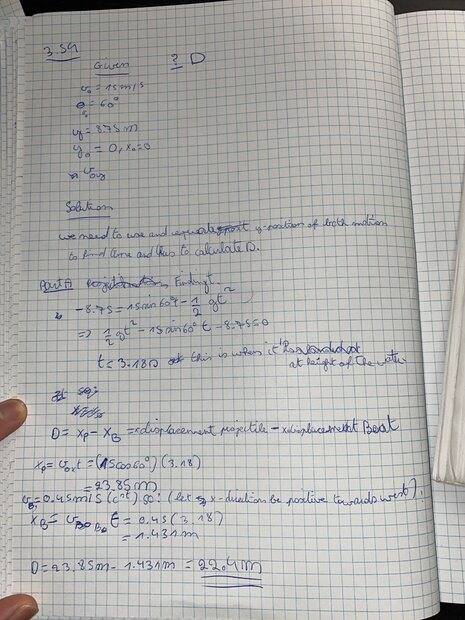 3.54
Given ? D
v₀ = 15m/s
θ₀ = 60°
y = 8.75m
y₀ = 0, x₀=0
v₀y
Solution
we need to use and y-position of both motion
to find time and thus to calculate D.
Part A Finding t.
-8.75 = 15sin60°t - 1/2 gt²
=> 1/2 gt² - 15sin60° t - 8.75=0
t = 3.18s this is when it is
at height of the water
D = xp - xB = x displacement projectile - x displacement Boat
xp = v₀x t = (15cos60°)(3.18)
= 23.85m
vB = 0.45m/s (ct) so: (let x-direction be positive towards west).
xB = t = 0.45 (3.18)
= 1.431m
D = 23.85m - 1.431m = 22.4m